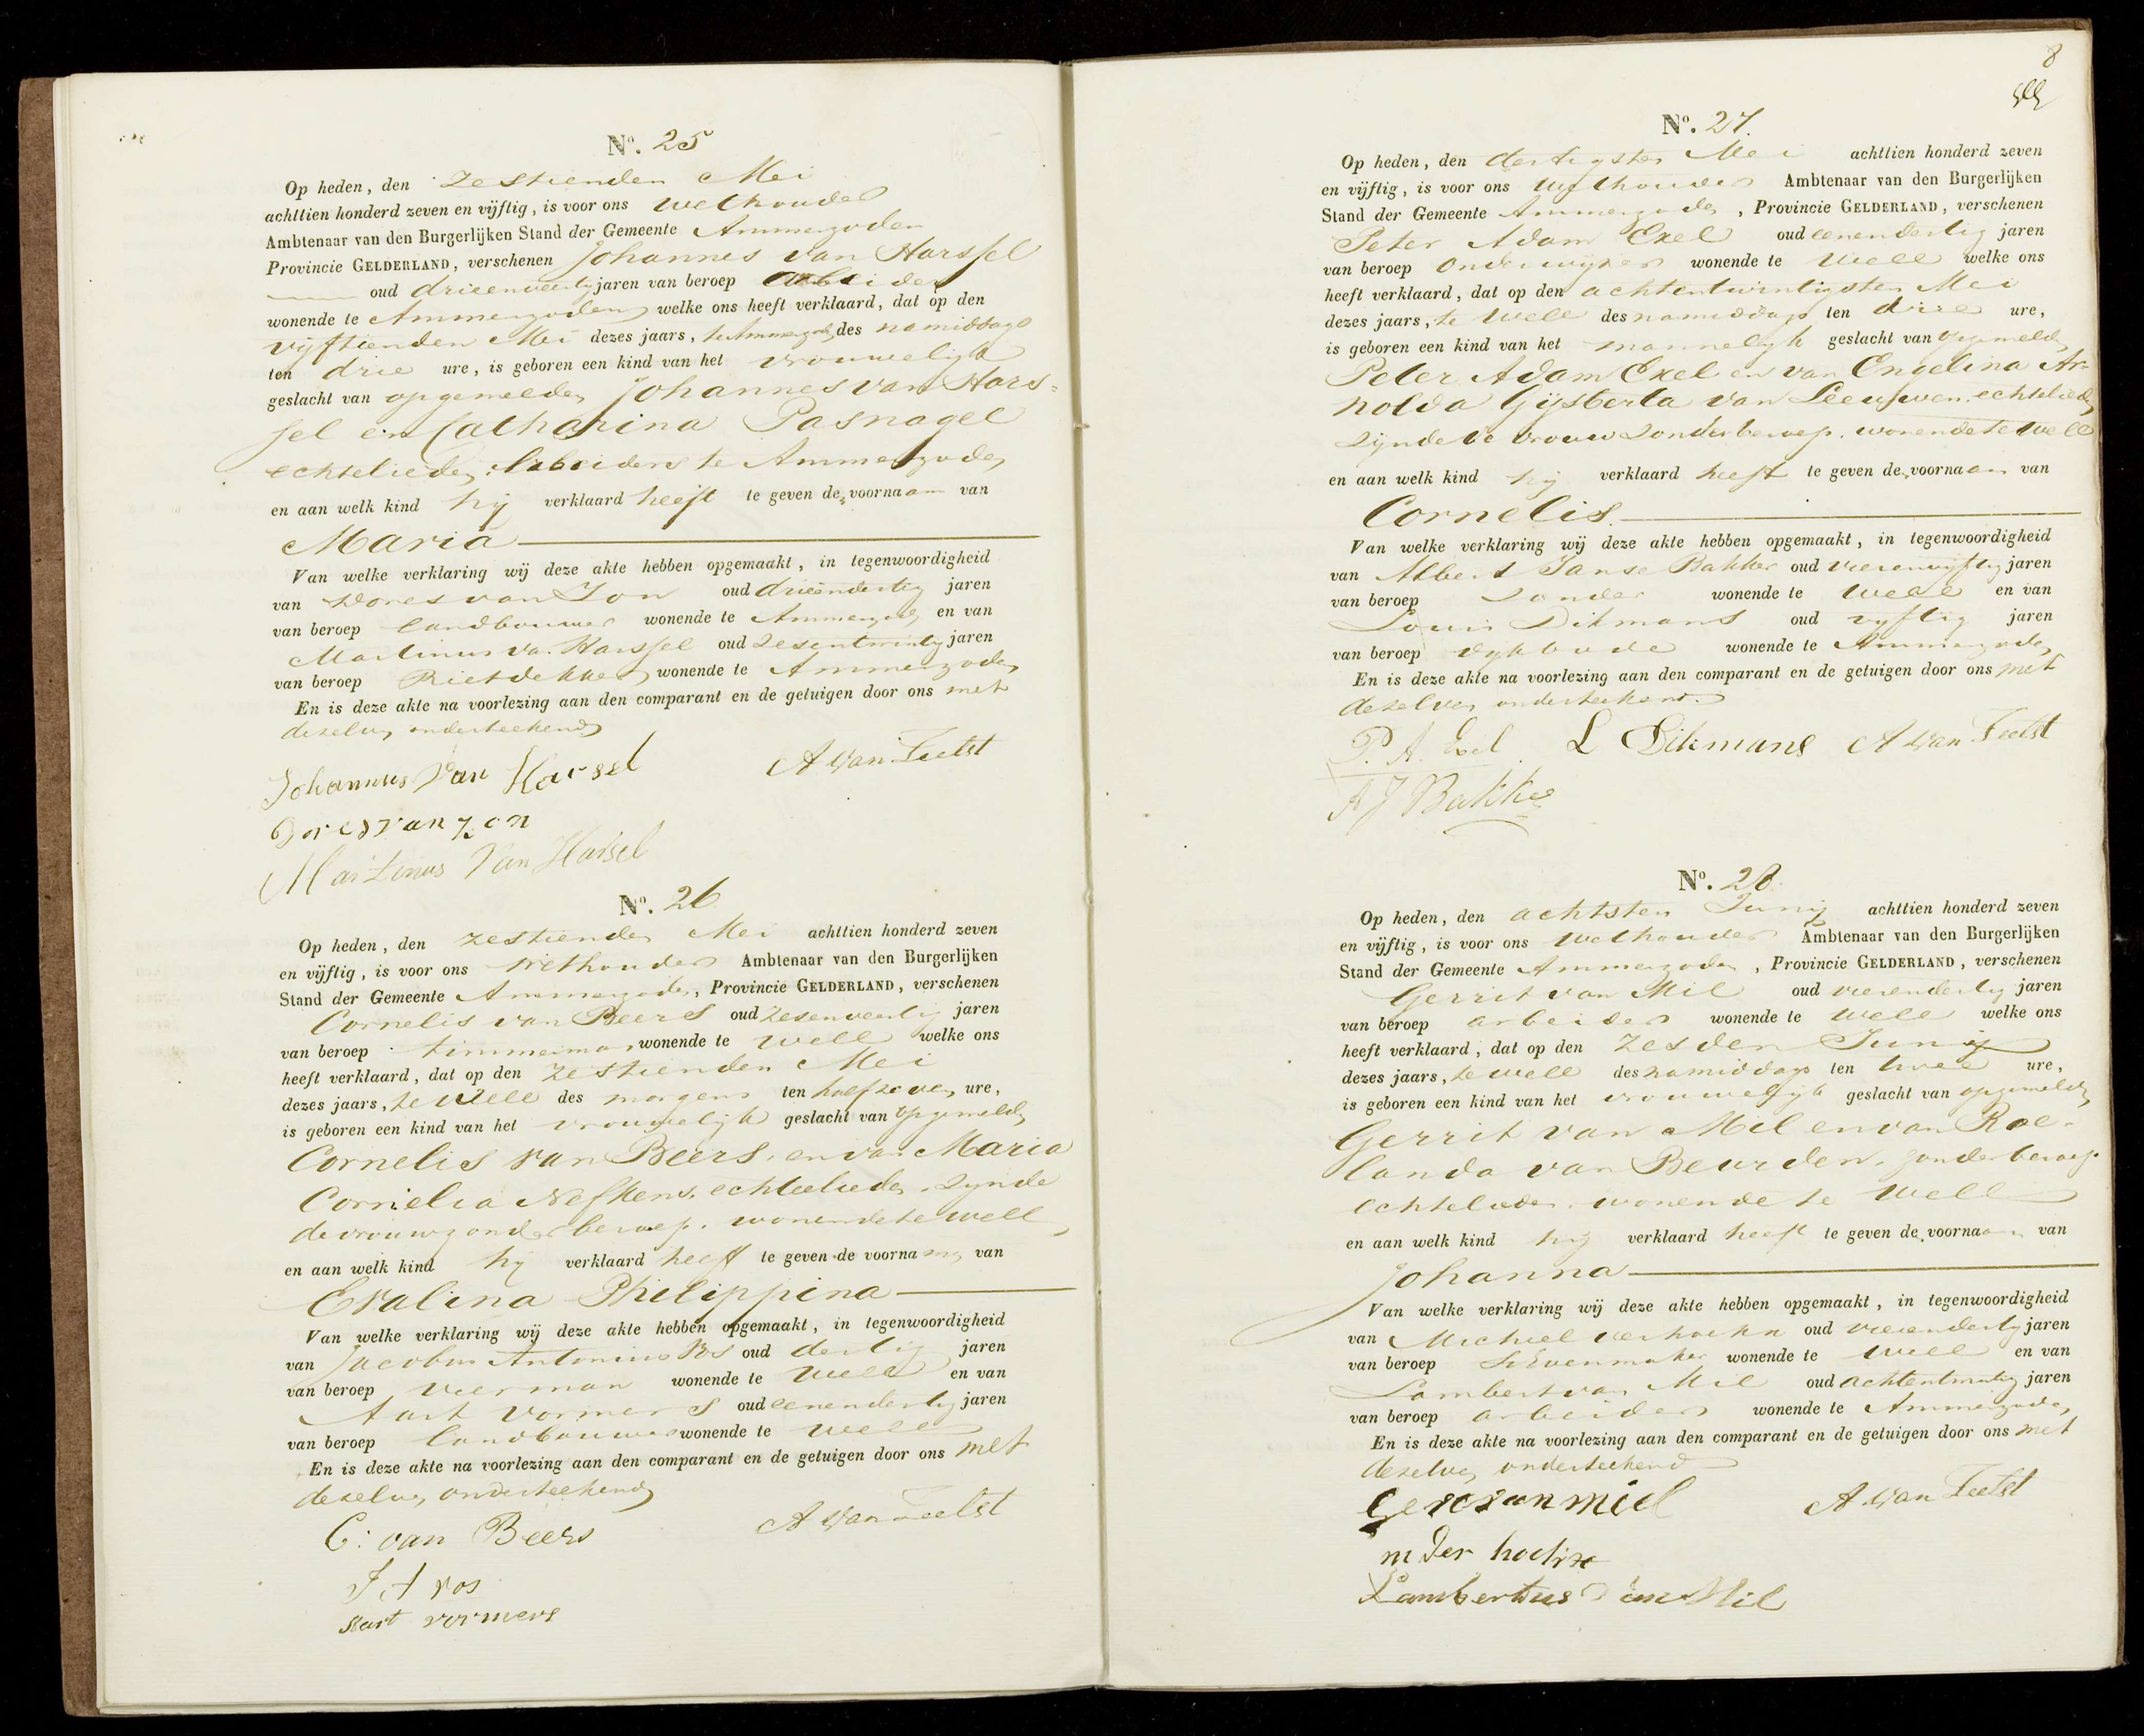 N°. 25
Op heden, den zestienden Mei
achttien honderd zeven en vijftig, is voor ons Wethouder
Ambtenaar van den Burgerlijken Stand der Gemeente Ammerzoden
Provincie GELDERLAND, verschenen Johannes van Harssel
oud drieenveertig jaren van beroep arbeider
wonende te Ammerzoden welke ons heeft verklaard, dat op den
vijftienden Mei dezes jaars, te Ammerzoden des namiddags
ten drie ure, is geboren een kind van het vrouwelijk
geslacht van opgemelden Johannes van Hars=
sel en Catharina Pasnagel
echtelieden, arbeiders te Ammerzoden
en aan welk kind hij verklaard heeft te geven de voornaam van
Maria
Van welke verklaring wij deze akte hebben opgemaakt, in tegenwoordigheid
van Dores van Zon oud drieëndertig jaren
van beroep landbouwer wonende te Ammerzoden en van
Martinus van Harssel oud zesentwintig jaren
van beroep Rietdekker wonende te Ammerzoden
En is deze akte na voorlezing aan den comparant en de getuigen door ons met
dezelven onderteekend
Johannus Van Harsel A van Teelst
Dores van zon
Martinus Van Harsel
N°. 26
Op heden, den zestienden Mei achttien honderd zeven
en vijftig, is voor ons Wethouder Ambtenaar van den Burgerlijken
Stand der Gemeente Ammerzoden, Provincie GELDERLAND, verschenen
Cornelis van Beers oud zesenveertig jaren
van beroep timmerman wonende te Well welke ons
heeft verklaard, dat op den zestienden Mei
dezes jaars, te Well des morgens ten half zeven ure,
is geboren een kind van het vrouwelijk geslacht van opgemelden
Cornelis van Beers, en van Maria
Cornelia Nefkens, echtelieden, zynde
de vrouw zonder beroep, wonende te Well
en aan welk kind hij verklaard heeft te geven de voornamen van
Evalina Philippina
Van welke verklaring wij deze akte hebben opgemaakt, in tegenwoordigheid
van Jacobus Antonius Vos oud dertig jaren
van beroep veerman wonende te Well en van
Aart Vormers oud eenendertig jaren
van beroep landbouwer wonende te Well
En is deze akte na voorlezing aan den comparant en de getuigen door ons met
dezelven onderteekend
C. van Beers A van Teelst
J A vos
Aart vormers
8
N°. 27.
Op heden, den dertigsten Mei achttien honderd zeven
en vijftig, is voor ons Wethouder Ambtenaar van den Burgerlijken
Stand der Gemeente Ammerzoden, Provincie GELDERLAND, verschenen
Peter Adam Exel oud eenendertig jaren
van beroep Onderwijzer wonende te Well welke ons
heeft verklaard, dat op den achtentwintigsten Mei
dezes jaars, te Well des namiddags ten drie ure,
is geboren een kind van het mannelijk geslacht van opgemelden
Peter Adam Exel en van Engelina Ar=
nolda Gijsberta van Leeuwen, echtelieden
zijnde de vrouw zonder beroep, wonende te Well
en aan welk kind hij verklaard heeft te geven de voornaam van
Cornelis.
Van welke verklaring wij deze akte hebben opgemaakt, in tegenwoordigheid
van Albert Janse Bakker oud vierenvijftig jaren
van beroep zonder wonende te Well en van
Louis Dikmans oud vijftig jaren
van beroep dijkbode wonende te Ammerzoden
En is deze akte na voorlezing aan den comparant en de getuigen door ons met
dezelven onderteekend.
P. A. Exel L Dikmans A van Teelst
A J Bakker
N°. 28.
Op heden, den achtsten Junij achttien honderd zeven
en vijftig, is voor ons Wethouder Ambtenaar van den Burgerlijken
Stand der Gemeente Ammerzoden, Provincie GELDERLAND, verschenen
Gerrit van Mil oud vierendertig jaren
van beroep arbeider wonende te Well welke ons
heeft verklaard, dat op den zesden Junij
dezes jaars, te Well des namiddags ten twee ure,
is geboren een kind van het vrouwelijk geslacht van opgemelden
Gerrit van Mil en van Roe-
landa van Beurden, zonder beroep
echtelieden wonende te Well
en aan welk kind hij verklaard heeft te geven de voornaam van
Johanna
Van welke verklaring wij deze akte hebben opgemaakt, in tegenwoordigheid
van Michiel Verhoekx oud vierendertig jaren
van beroep Schoenmaker wonende te Well en van
Lambert van Mil oud achtentwintig jaren
van beroep arbeider wonende te Ammerzoden
En is deze akte na voorlezing aan den comparant en de getuigen door ons met
dezelven onderteekend
Ger van Miel A van Teelst
Lambertus van Mil